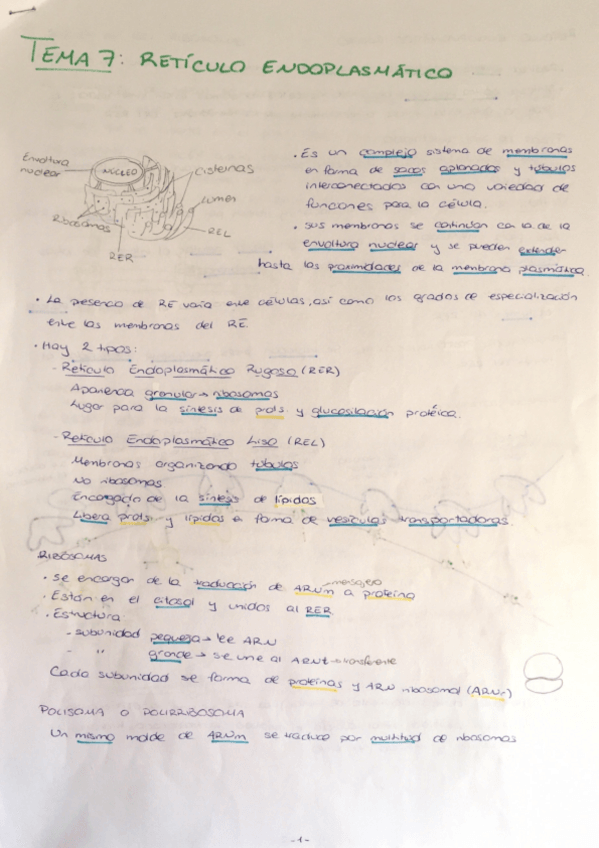 TEMA 7: RETÍCULO ENDOPLASMÁTICO
Envoltura
nuclear
NÚCLEO
Cisternas
Lumen
REL
Ribosomas
RER
· Es un complejo sistema de membranas
en forma de sacos aplanados y túbulos
interconectados con una variedad de
funciones para la célula.
· Sus membranas se continúan con la de la
envoltura nuclear y se pueden extender
hasta las proximidades de la membrana plasmática.
· La presencia de RE varía entre células, así como los grados de especialización
entre las membranas del RE.
· Hay 2 tipos:
- Retículo Endoplasmático Rugoso (RER)
Apariencia granular → ribosomas
Lugar para la síntesis de prots. y glucosilación protéica.
- Retículo Endoplasmático Liso (REL)
Membranas organizando túbulos
No ribosomas
Encargado de la síntesis de lípidos
Libera prots. y lípidos en forma de vesículas transportadoras.
RIBOSOMAS
· Se encargan de la traducción de ARNm → mensajero a proteína
· Están en el citosol y unidos al RER
· Estructura
- subunidad pequeña → lee ARN
- " grande → se une al ARNt → transferente
Cada subunidad se forma de proteínas y ARN ribosomal (ARNr)
POLISOMA O POLIRRIBOSOMA
Un mismo molde de ARNm se traduce por multitud de ribosomas
-1-